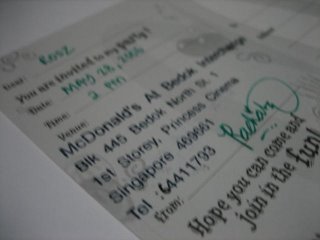 Dear ROSZ
You are invited to my party!
Date: MAY 28, 2006
Time: 2 PM
Venue:
McDonald's At Bedok Interchange
Blk 445 Bedok North St. 1
1st Storey, Princess Cinema
Singapore 469661
Tel : 64411793
from:
Hope you can come and
join in the fun!